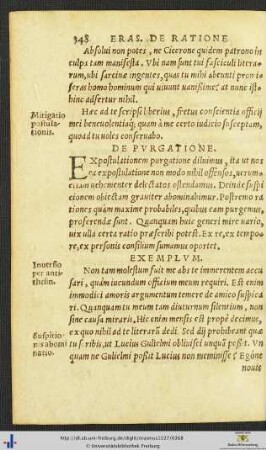 348 ERAS. DE RATIONE
Absolui non potes, ne Cicerone quidem patrono in
culpa tam manifesta. Vbi nam sunt tui fasciculi litera-
rum, ubi sarcinæ ingentes, quas tu mihi abeunti promi-
seras homo hominum qui uiuunt uanissime? at nunc ist-
hinc adfertur nihil.
Mitigatio
postula-
tionis.
Hæc ad te scripsi liberius, fretus conscientia officij
mei beneuolentiæq́;, quam à me certo iudicio susceptam,
quoad tu uoles conseruabo.
DE PVRGATIONE.
EXpostulationem purgatione diluimus, ita ut nos
ea expostulatione non modo nihil offensos, uerum-
etiam uehementer delectatos ostendamus. Deinde suspi-
tionem obiectam grauiter abominabimur. Postremo ra-
tiones quàm maxime probabiles, quibus eam purgemus,
proferendæ sunt. Quanquam huic generi mire uario,
uix ulla certa ratio præscribi potest. Ex re, ex tempo-
re, ex personis consilium sumamus oportet.
EXEMPLVM.
Inuersio
per anti-
thesin.
Non tam molestum fuit me abs te immerentem accu-
sari, quàm iucundum officium meum requiri. Est enim
immodici amoris argumentum temere de amico suspica-
ri. Quanquam tu meum tam diuturnum silentium, non
sine causa miraris. Hic enim mensis est propè decimus,
ex quo nihil ad te literarū dedi. Sed dij prohibeant quæ
Suspitio-
nis abomi
natio.
tu scribis, ut Lucius Gulielmi obliuisci unquā possit. Vn
quam ne Gulielmi possit Lucius non meminisse? Egóne
nouis
http://dl.ub.uni-freiburg.de/diglit/erasmus1527/0368
© Universitätsbibliothek Freiburg